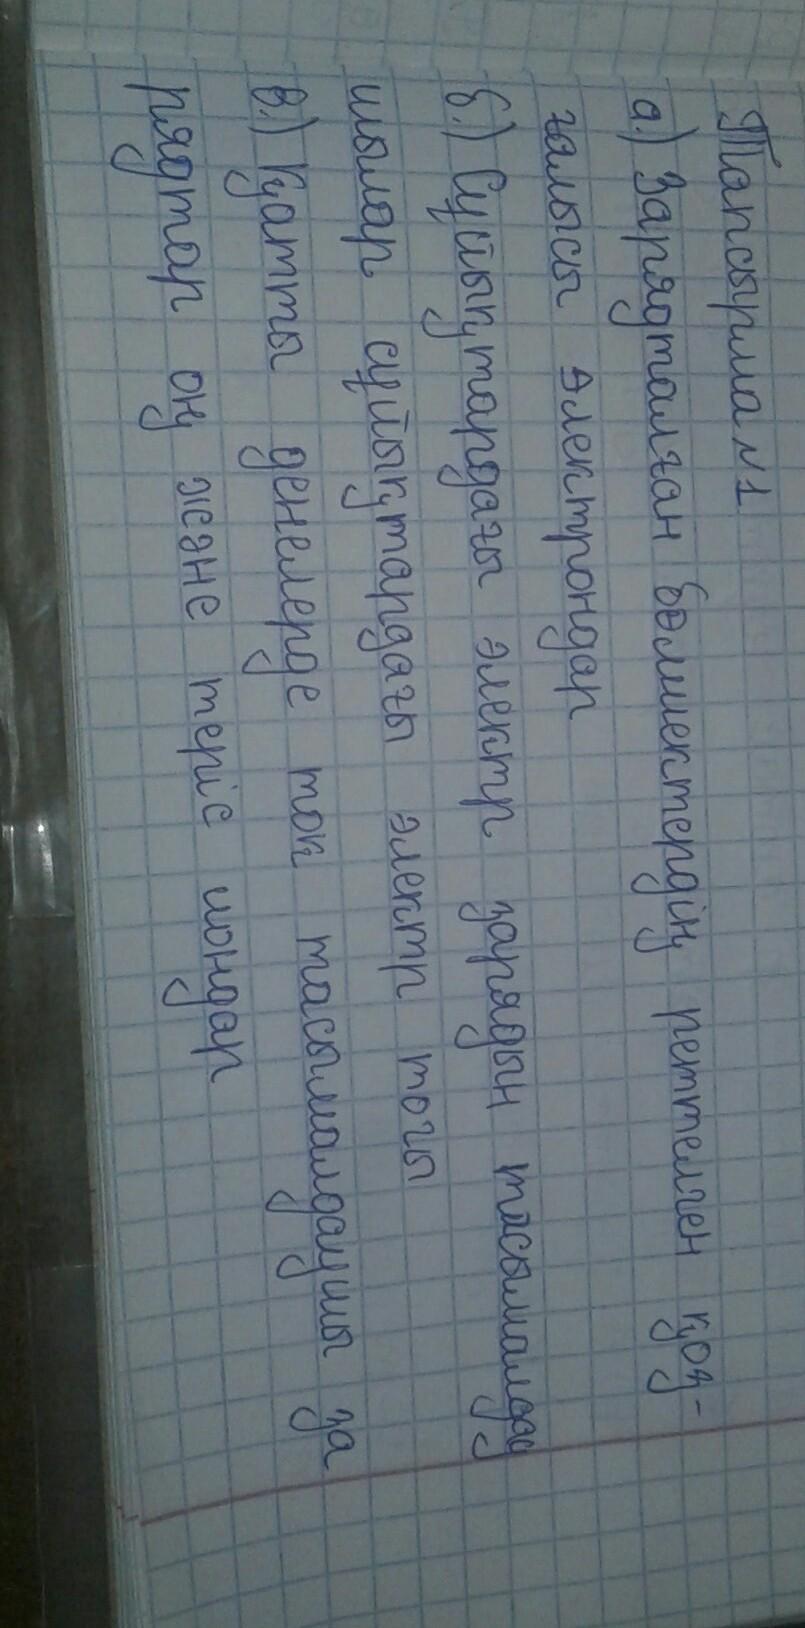 Тапсырма №1
а.) Зарядталған бөлшектердің реттелген қоз-
ғалысы электрондар
б.) Сұйықтардағы электр зарядын тасымалдау
шылар сұйықтардағы электр тогы
в.) Қатты денелерде тоқ тасымалдаушы за
рядтар оң және теріс иондар